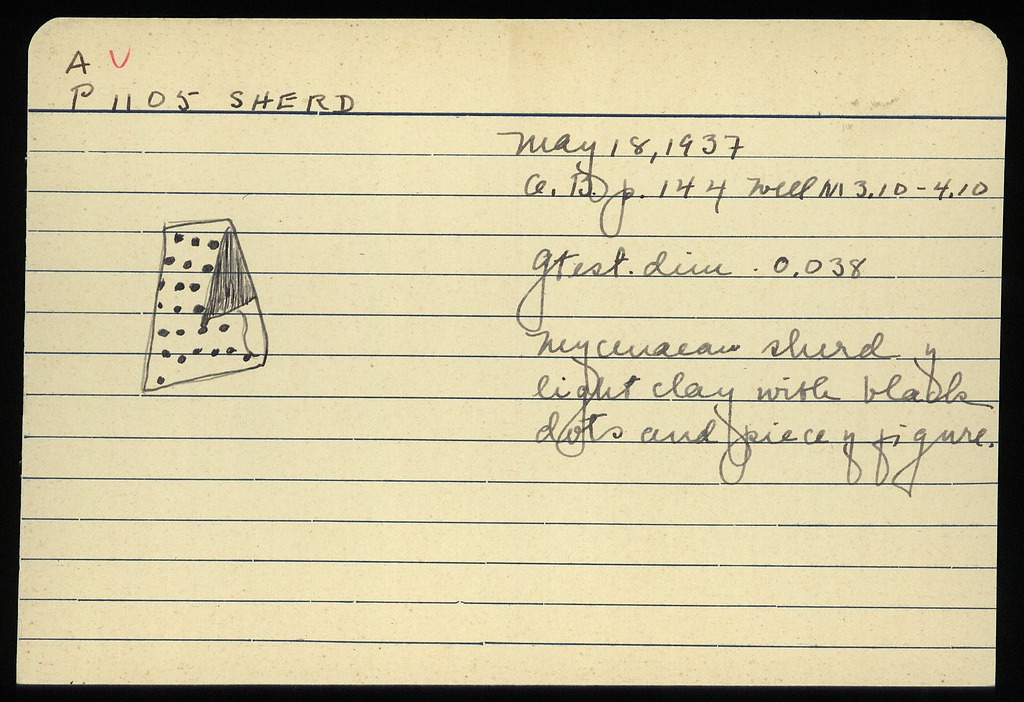 A V
P 1105 SHERD
May 18, 1937
G.B. p. 144 Well M 3.10 - 4.10
Gtest. dim. 0.038
Mycenaean sherd of
light clay with black
dots and piece of figure.